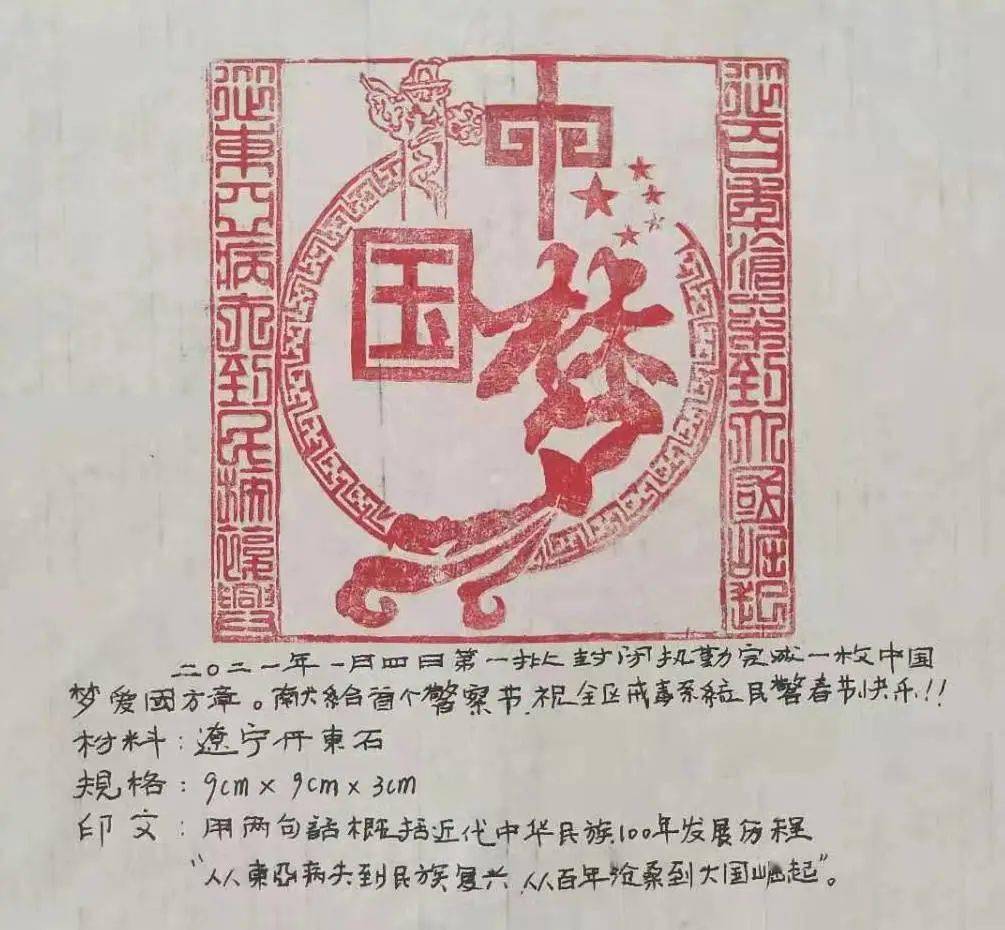 中国梦
從東亞病夫到民族復興
從百年滄桑到大國崛起
二〇二一年一月四日第一批封闭执勤完成一枚中国
梦爱國方章。献給首个警察节.祝全区戒毒系統民警春节快乐!!
材料：遼宁丹東石
規格：9cm×9cm×3cm
印文：用两句話概括近代中华民族100年发展历程
“从東亞病夫到民族复兴,从百年沧桑到大国崛起”。